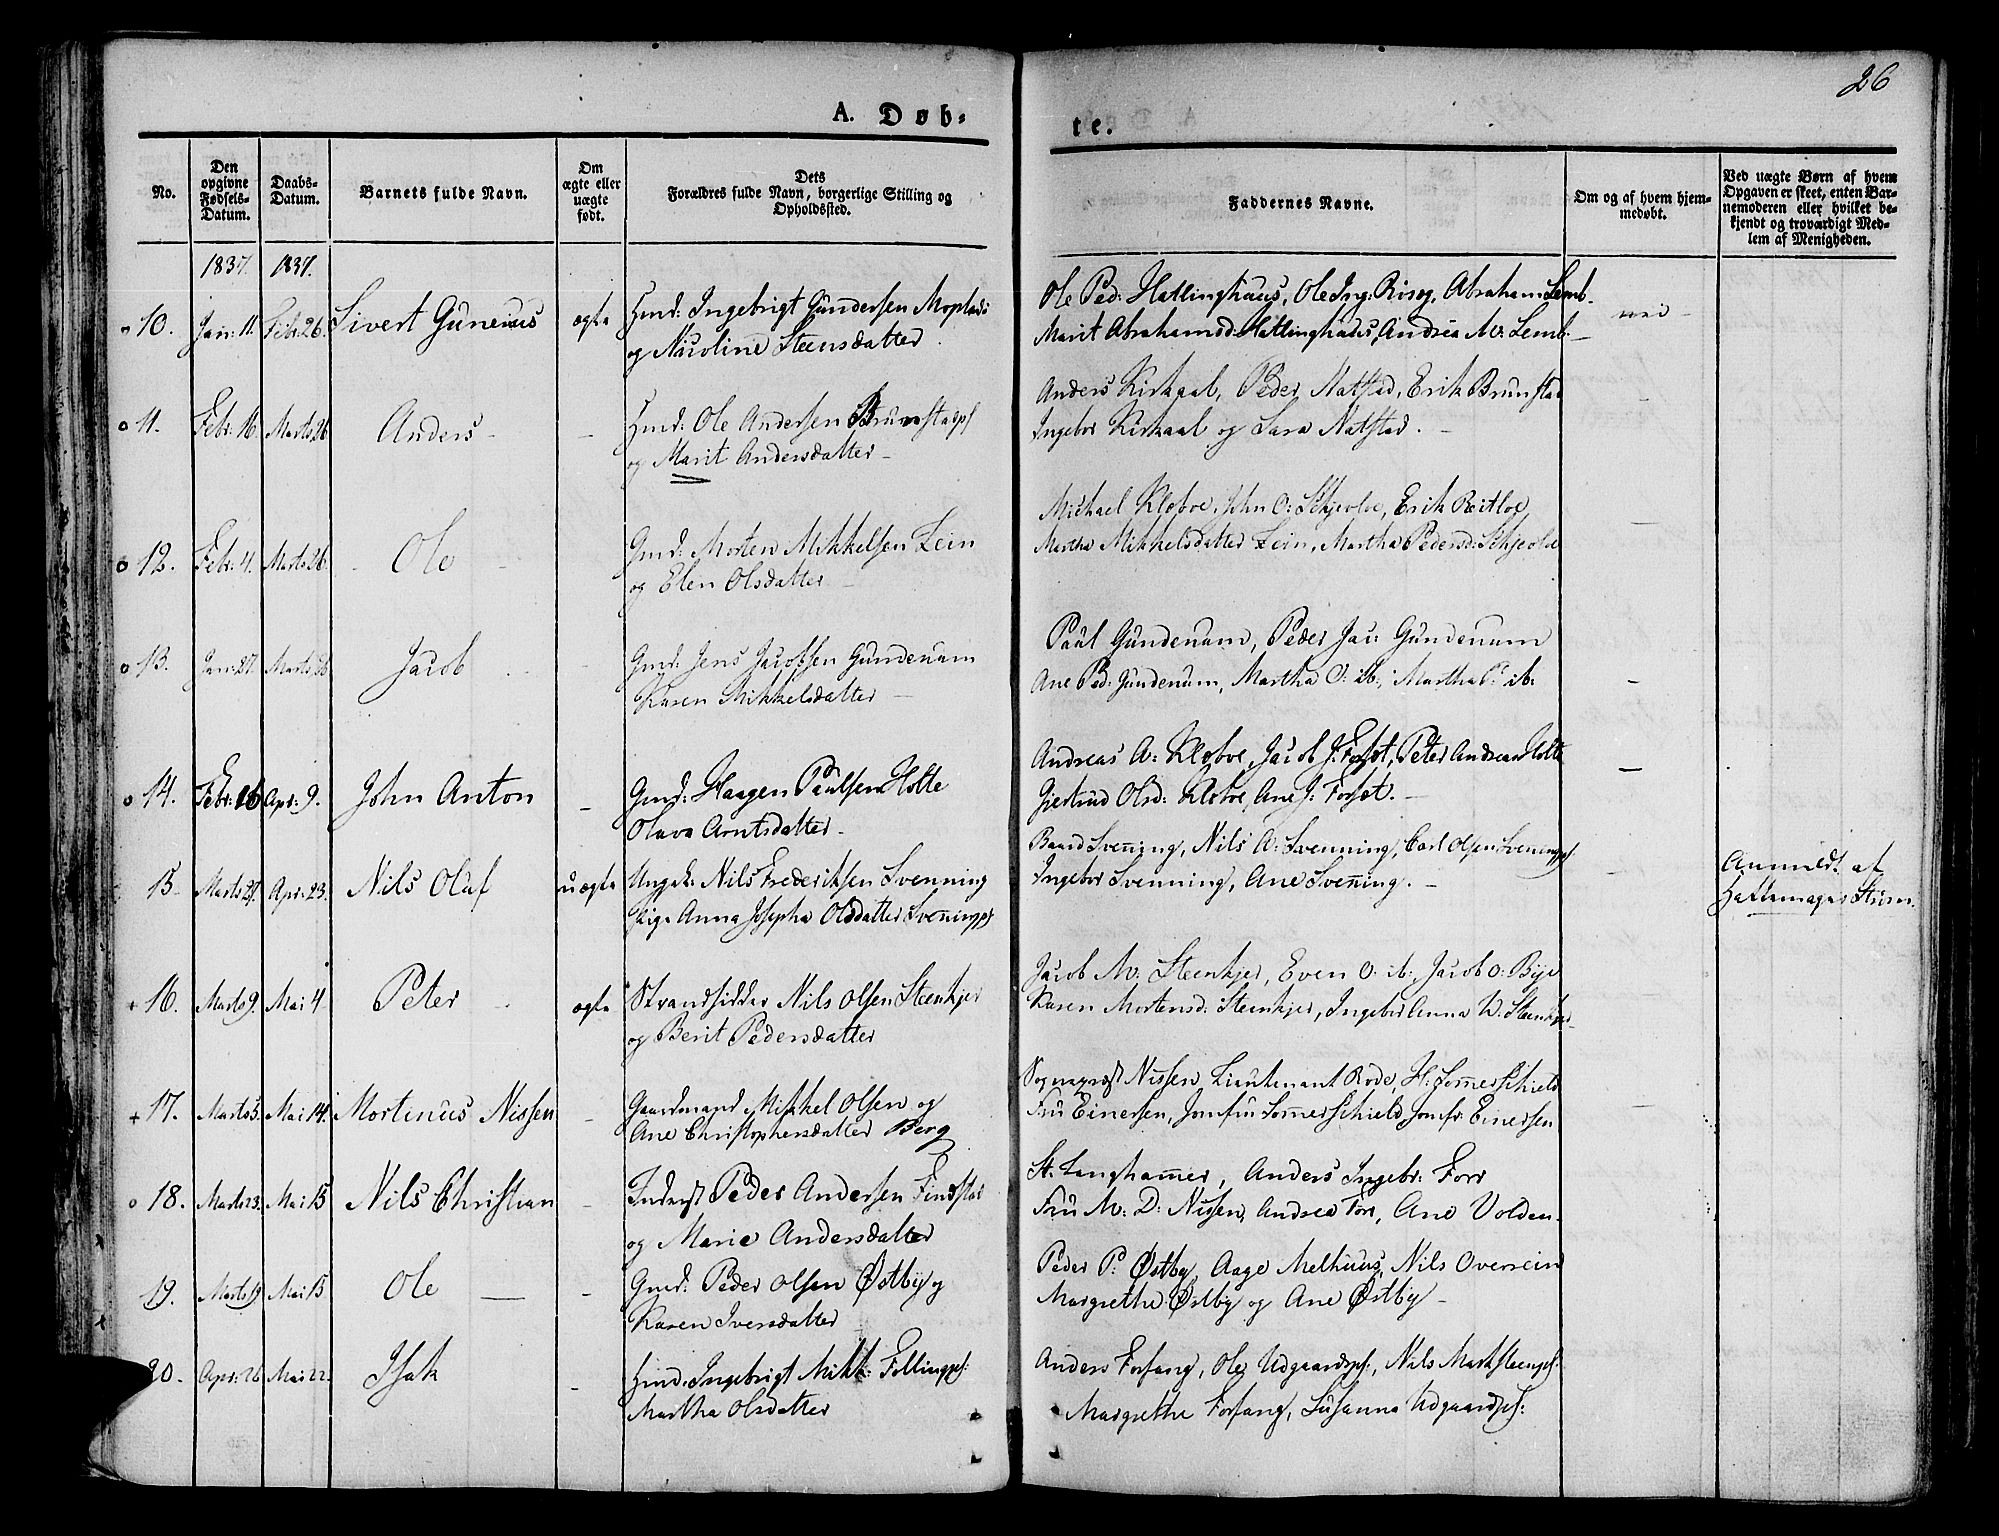 26
A. Døb-
te.
No.
Den opgivne Fødsels-Datum.
Daabs-Datum.
Barnets fulde Navn.
Om ægte eller uægte født.
Dets Forældres fulde Navn, borgerlige Stilling og Opholdssted.
Faddernes Navne.
Om og af hvem hjemmedøbt.
Ved uægte Børn af hvem Opgaven er skeet, enten Barnemoderen eller hvilket bekjendt og troværdigt Medlem af Menigheden.
1837. 1837.
10. Jan: 11. Febr: 26. Sivert Guneius ægte Hmd: Ingebrigt Gundersen
og Nicoline Steensdatter.
Ole Ped: Hallinghuus, Ole Ing: Risog, Abraham Lemb.
Marit Abrahamsd: Hallinghuus, Andrea M: Lemb. –
nei –
11. Febr: 16. Marts 26. Anders – –
Hmd: Ole Andersen Brunstadpl
og Marit Andersdatter –
Anders Kirkaal, Peder Natstad, Erik Brunstad
Ingebor Kirkaal og Sara Natstad. –
12. Febr: 4. Marts 26. – Ole –
Gmd: Morten Mikkelsen Lein
og Elen Olsdatter –
Michael Kløbve, John O: Skjevlo, Erik Reitloe
Martha Mikkelsdatter Lein, Martha Pedersd: Skjevlo
13. Jan: 27. Marts 26 Jacob –
Gmd: Jens Jacobsen Gundenum
Karen Mikkelsdatter –
Paul Gundenum, Peder Jac: Gundenum
Ane Ped: Gundenum, Martha O: ib:, Martha P: ib.
14. Febr: 16 Apr: 9. John Anton –
Gmd: Haagen Paulsen Holte
Olava Arntsdatter –
Andreas A: Kløbve, Jacob J: Forfot, Peter Andreas Holte
Gjertrud Olsd: Kløbve, Ane J: Forfot. –
15 – Marts 27. Apr: 23. Nils Oluf uægte
Ungk: Nils Frederiksen Svenning
Pige Anna Josepha Olsdatter Sveningpl
Baard Svening, Nils A: Svenning, Carl Olsen Sveningpl.
Ingebor Svenning, Ane Svening. –
Anmeldt af
Hattemager Sturm.
16. Marts 9. Mai 4 Peter ægte
Strandsidder Nils Olsen Steenkjer
og Berit Pedersdatter
Jacob M: Steenkjer, Even O: ib: Jacob O: Bye
Karen Mortensd: Steenkjer, Ingebor Anna W. Steenkjer
17. Marts 5. Mai 14. Mortinus Nissen –
Gaardmand Mikkel Olsen og
Ane Christophersdatter Berg
Sognepræst Nissen, Lieutenant Rode, H: Sommerschield
Fru Einersen, Jomfru Sommerschield, Jomfr: Einersen
18. Marts 23. Mai 15 Nils Christian –
Inderst Peder Andersen Findstad
og Marie Andersdatter
St. Langhammer, Anders Ingebr: Forr
Fru M: D: Nissen, Andrea Forr, Ane Volden.
19. Marts 19. Mai 15 Ole – –
Gmd: Peder Olsen Østby og
Karen Iversdatter
Peder P: Østby, Aage Melhuus, Nils Overein
Margrethe Østby og Ane Østby –
20. Apr: 26 Mai 22. Isak –
Hmd: Ingebrigt Mikk: Follingpl:
Martha Olsdatter
Anders Forfang, Ole Udgaardspl:, Nils Marksteenpl:
Margrethe Forfang, Susanna Udgaardpl: